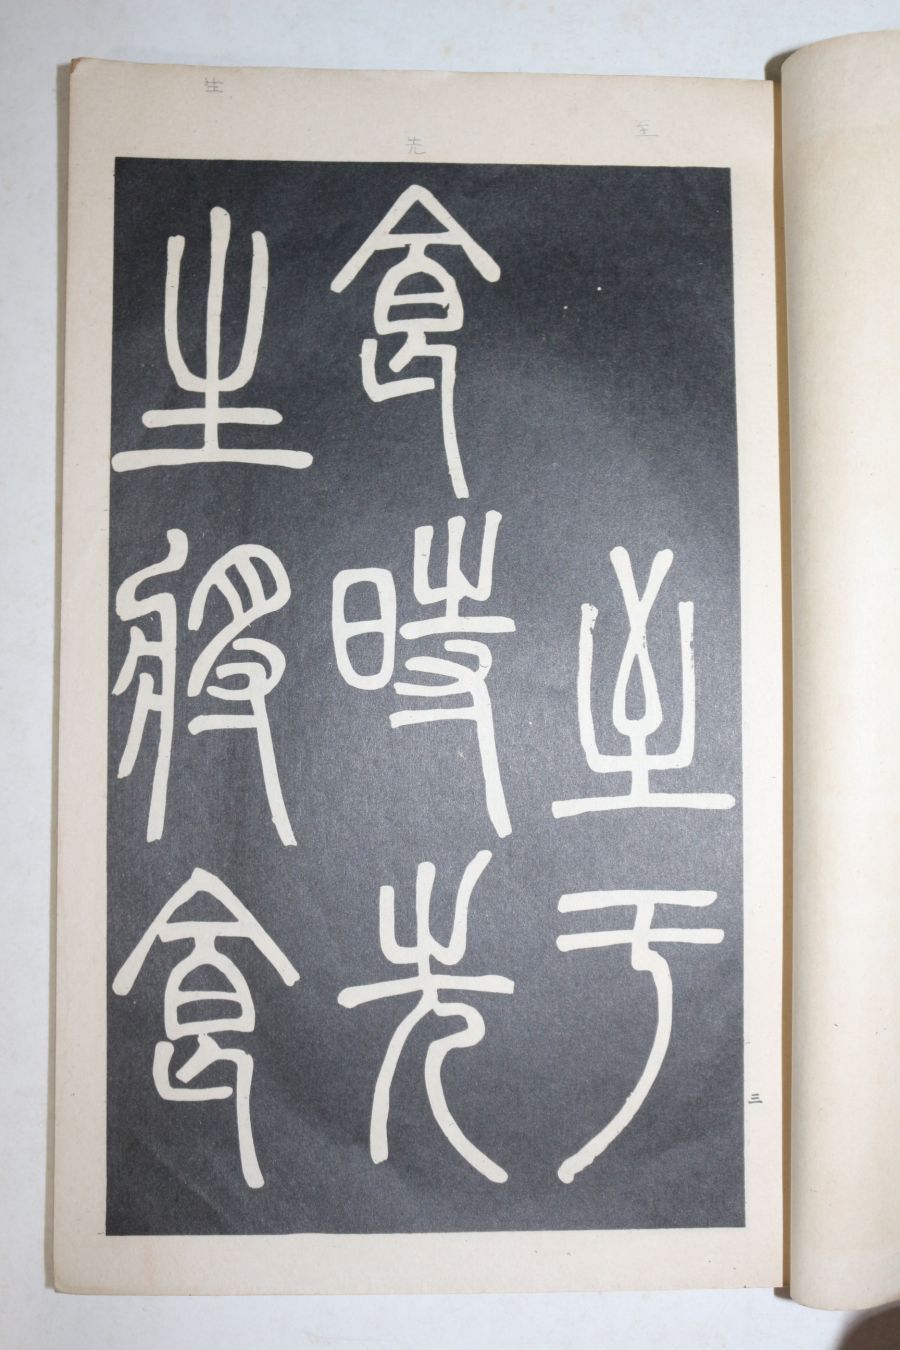 至于
食時先
生將食
三
至
先
生